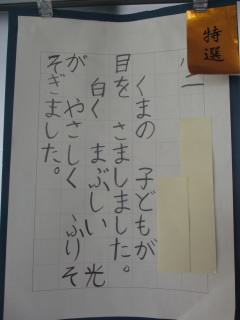 特選
くまの 子どもが
目を さましました。
白く まぶしい 光
が やさしく ふりそ
そぎました。